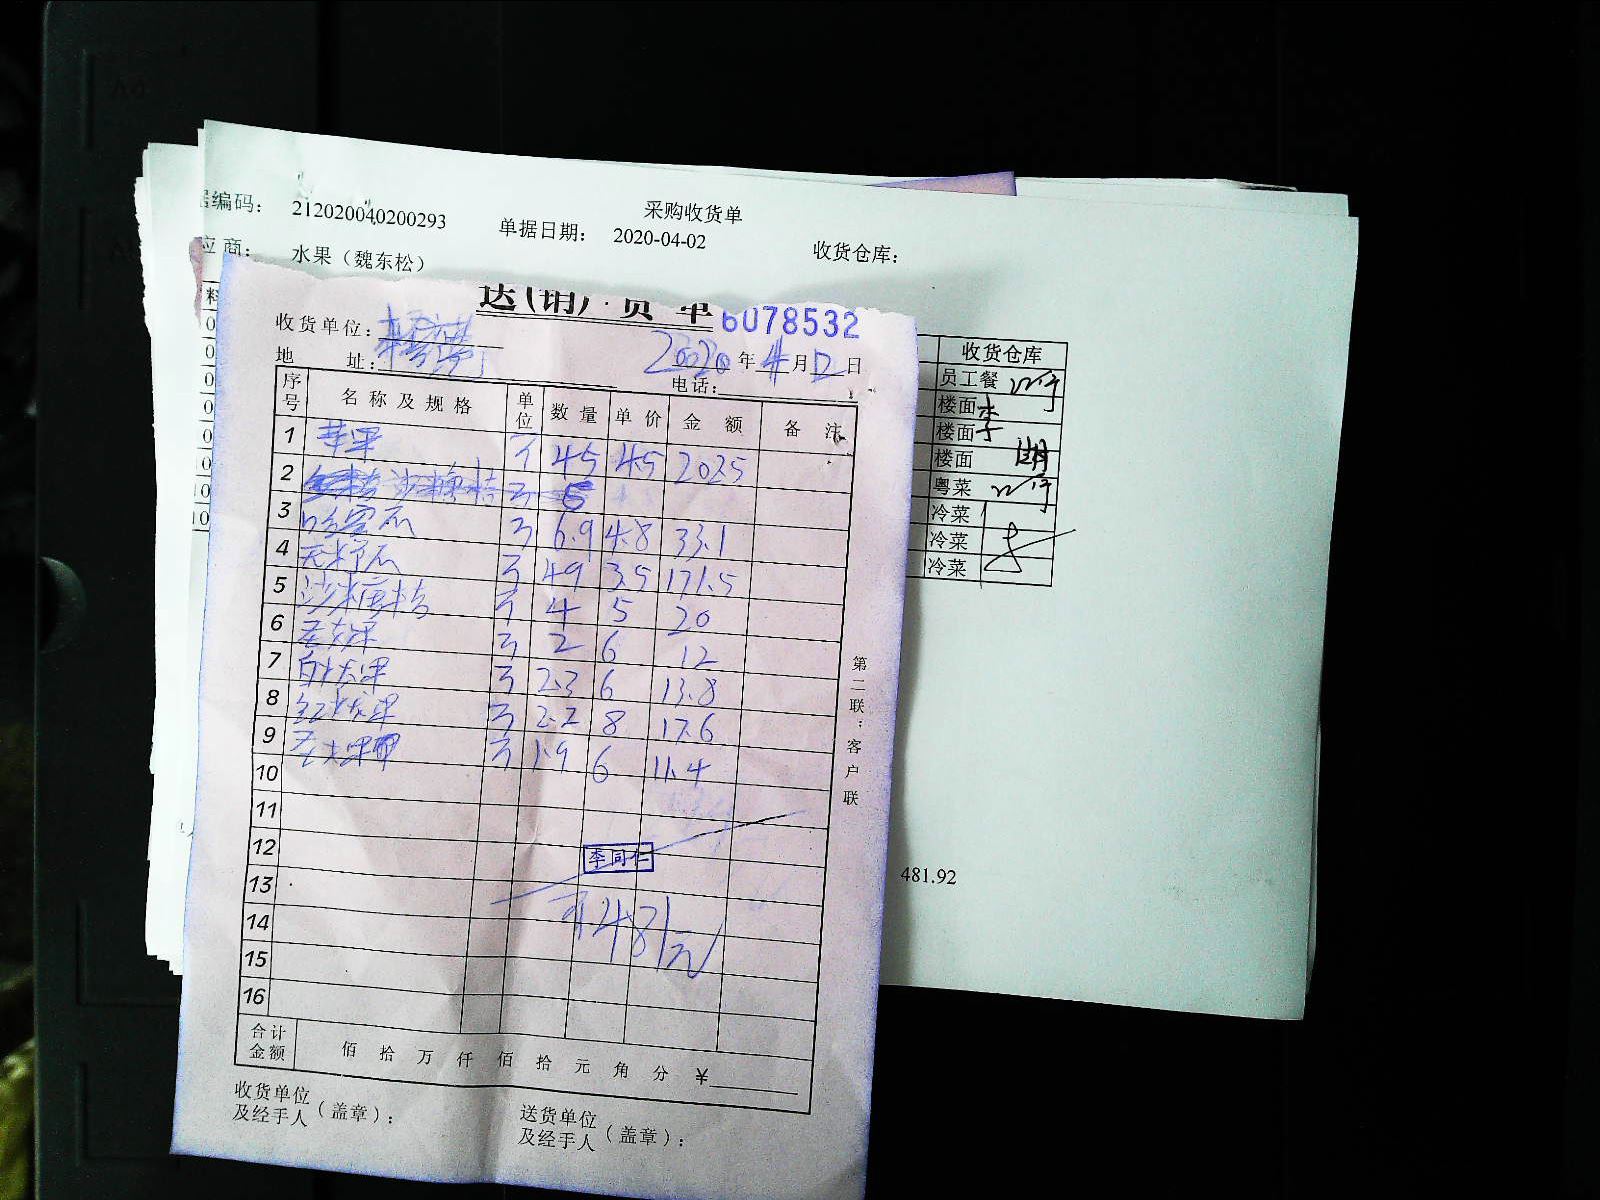 采购收货单
编码： 212020040200293 单据日期： 2020-04-02 收货仓库：
应商： 水果（魏东松）
料
收货仓库
员工餐
楼面
楼面
楼面
粤菜
冷菜
冷菜
冷菜
481.92
送(销)货单 6078532
收货单位：
地 址： 2020年4月2日
电话：
序号 名称及规格 单位 数量 单价 金额 备注
1 苹果 斤 45 4.5 202.5
2 沙糖桔 斤
3 哈密瓜 斤 6.9 4.8 33.1
4 无籽瓜 斤 49 3.5 171.5
5 沙糖桔 斤 4 5 20
6 圣女果 斤 2 6 12
7 白火龙果 斤 2.3 6 13.8
8 红火龙果 斤 2.2 8 17.6
9 斤 1.9 6 11.4
10
11
12 李同仁
13
14 481元
15
16
合计金额 佰 拾 万 仟 佰 拾 元 角 分 ¥
收货单位及经手人（盖章）： 送货单位及经手人（盖章）：
第二联：客户联